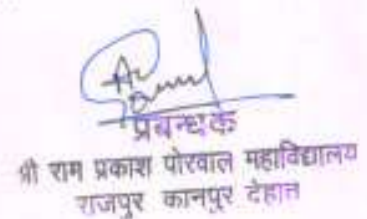 प्रबन्धक
श्री राम प्रकाश पोरवाल महाविद्यालय
राजपुर कानपुर देहात